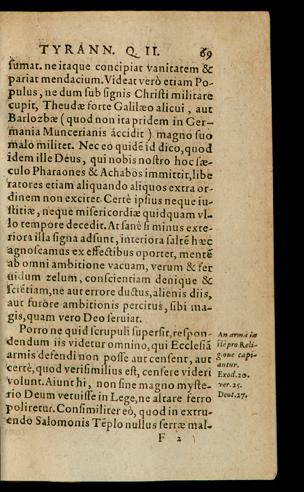 TYRANN. Q. II. 69
sumat. ne itaque concipiat vanitatem &
pariat mendacium. Videat verò etiam Po-
pulus, ne dum sub signis Christi militare
cupit, Theudæ forte Galilæo alicui, aut
Barlozbæ (quod non ita pridem in Ger-
mania Muncerianis áccidit) magno suo
malo militet. Nec eo quidē id dico, quod
idem ille Deus, qui nobis nostro hoc sæ-
culo Pharaones & Achabos immittit, libe
ratores etiam aliquando aliquos extra or-
dinem non excitet. Certè ipsius neque iu-
stitiæ, neque misericordiæ quidquam vl-
lo tempore decedit. At sanè si minus exte-
riora illa signa adsunt, interiora saltē hæc
agnoscamus ex effectibus oportet, mentē
ab omni ambitione vacuam, verum & fer
uidum zelum, conscientiam denique &
sciētiam, ne aut errore ductus, alienis diis,
aut furore ambitionis percitus, sibi ma-
gis, quam vero Deo seruiat.
Porro ne quid scrupuli supersit, respon-
dendum iis videtur omnino, qui Ecclesiā
armis defendi non posse aut censent, aut
certè, quod verisimilius est, censere videri
volunt. Aiunt hi, non sine magno myste-
rio Deum vetuisse in Lege, ne altare ferro
poliretur. Consimiliter eò, quod in extru-
endo Salomonis Tēplo nullus serræ mal-
F 2
An arma iu
stè pro Reli-
gione capi-
antur.
Exod. 20.
ver. 25.
Deut. 27.